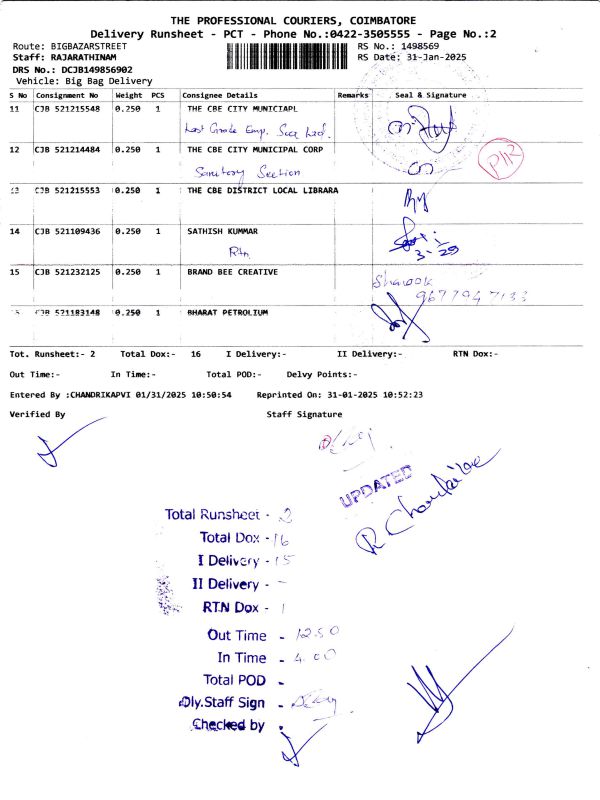 THE PROFESSIONAL COURIERS, COIMBATORE
Delivery Runsheet - PCT - Phone No.:0422-3505555 - Page No.:2
Route: BIGBAZARSTREET RS No.: 1498569
Staff: RAJARATHINAM RS Date: 31-Jan-2025
DRS No.: DCJB149856902
Vehicle: Big Bag Delivery
S No Consignment No Weight PCS Consignee Details Remarks Seal & Signature
11 CJB 521215548 0.250 1 THE CBE CITY MUNICIAPL
Last Grade Emp. Soc Ltd.
12 CJB 521214484 0.250 1 THE CBE CITY MUNICIPAL CORP
Sanitory Section
13 CJB 521215553 0.250 1 THE CBE DISTRICT LOCAL LIBRARA
14 CJB 521109436 0.250 1 SATHISH KUMMAR
Rtn 3-29
15 CJB 521232125 0.250 1 BRAND BEE CREATIVE
Sharook
9677947133
CJB 521183148 0.250 1 BHARAT PETROLIUM
Tot. Runsheet:- 2 Total Dox:- 16 I Delivery:- II Delivery:- RTN Dox:-
Out Time:- In Time:- Total POD:- Delvy Points:-
Entered By :CHANDRIKAPVI 01/31/2025 10:50:54 Reprinted On: 31-01-2025 10:52:23
Verified By Staff Signature
UPDATED
Total Runsheet - 2
Total Dox - 16
I Delivery - 15
II Delivery - -
RTN Dox - 1
Out Time - 12.50
In Time - 4.00
Total POD -
Dly.Staff Sign -
Checked by -